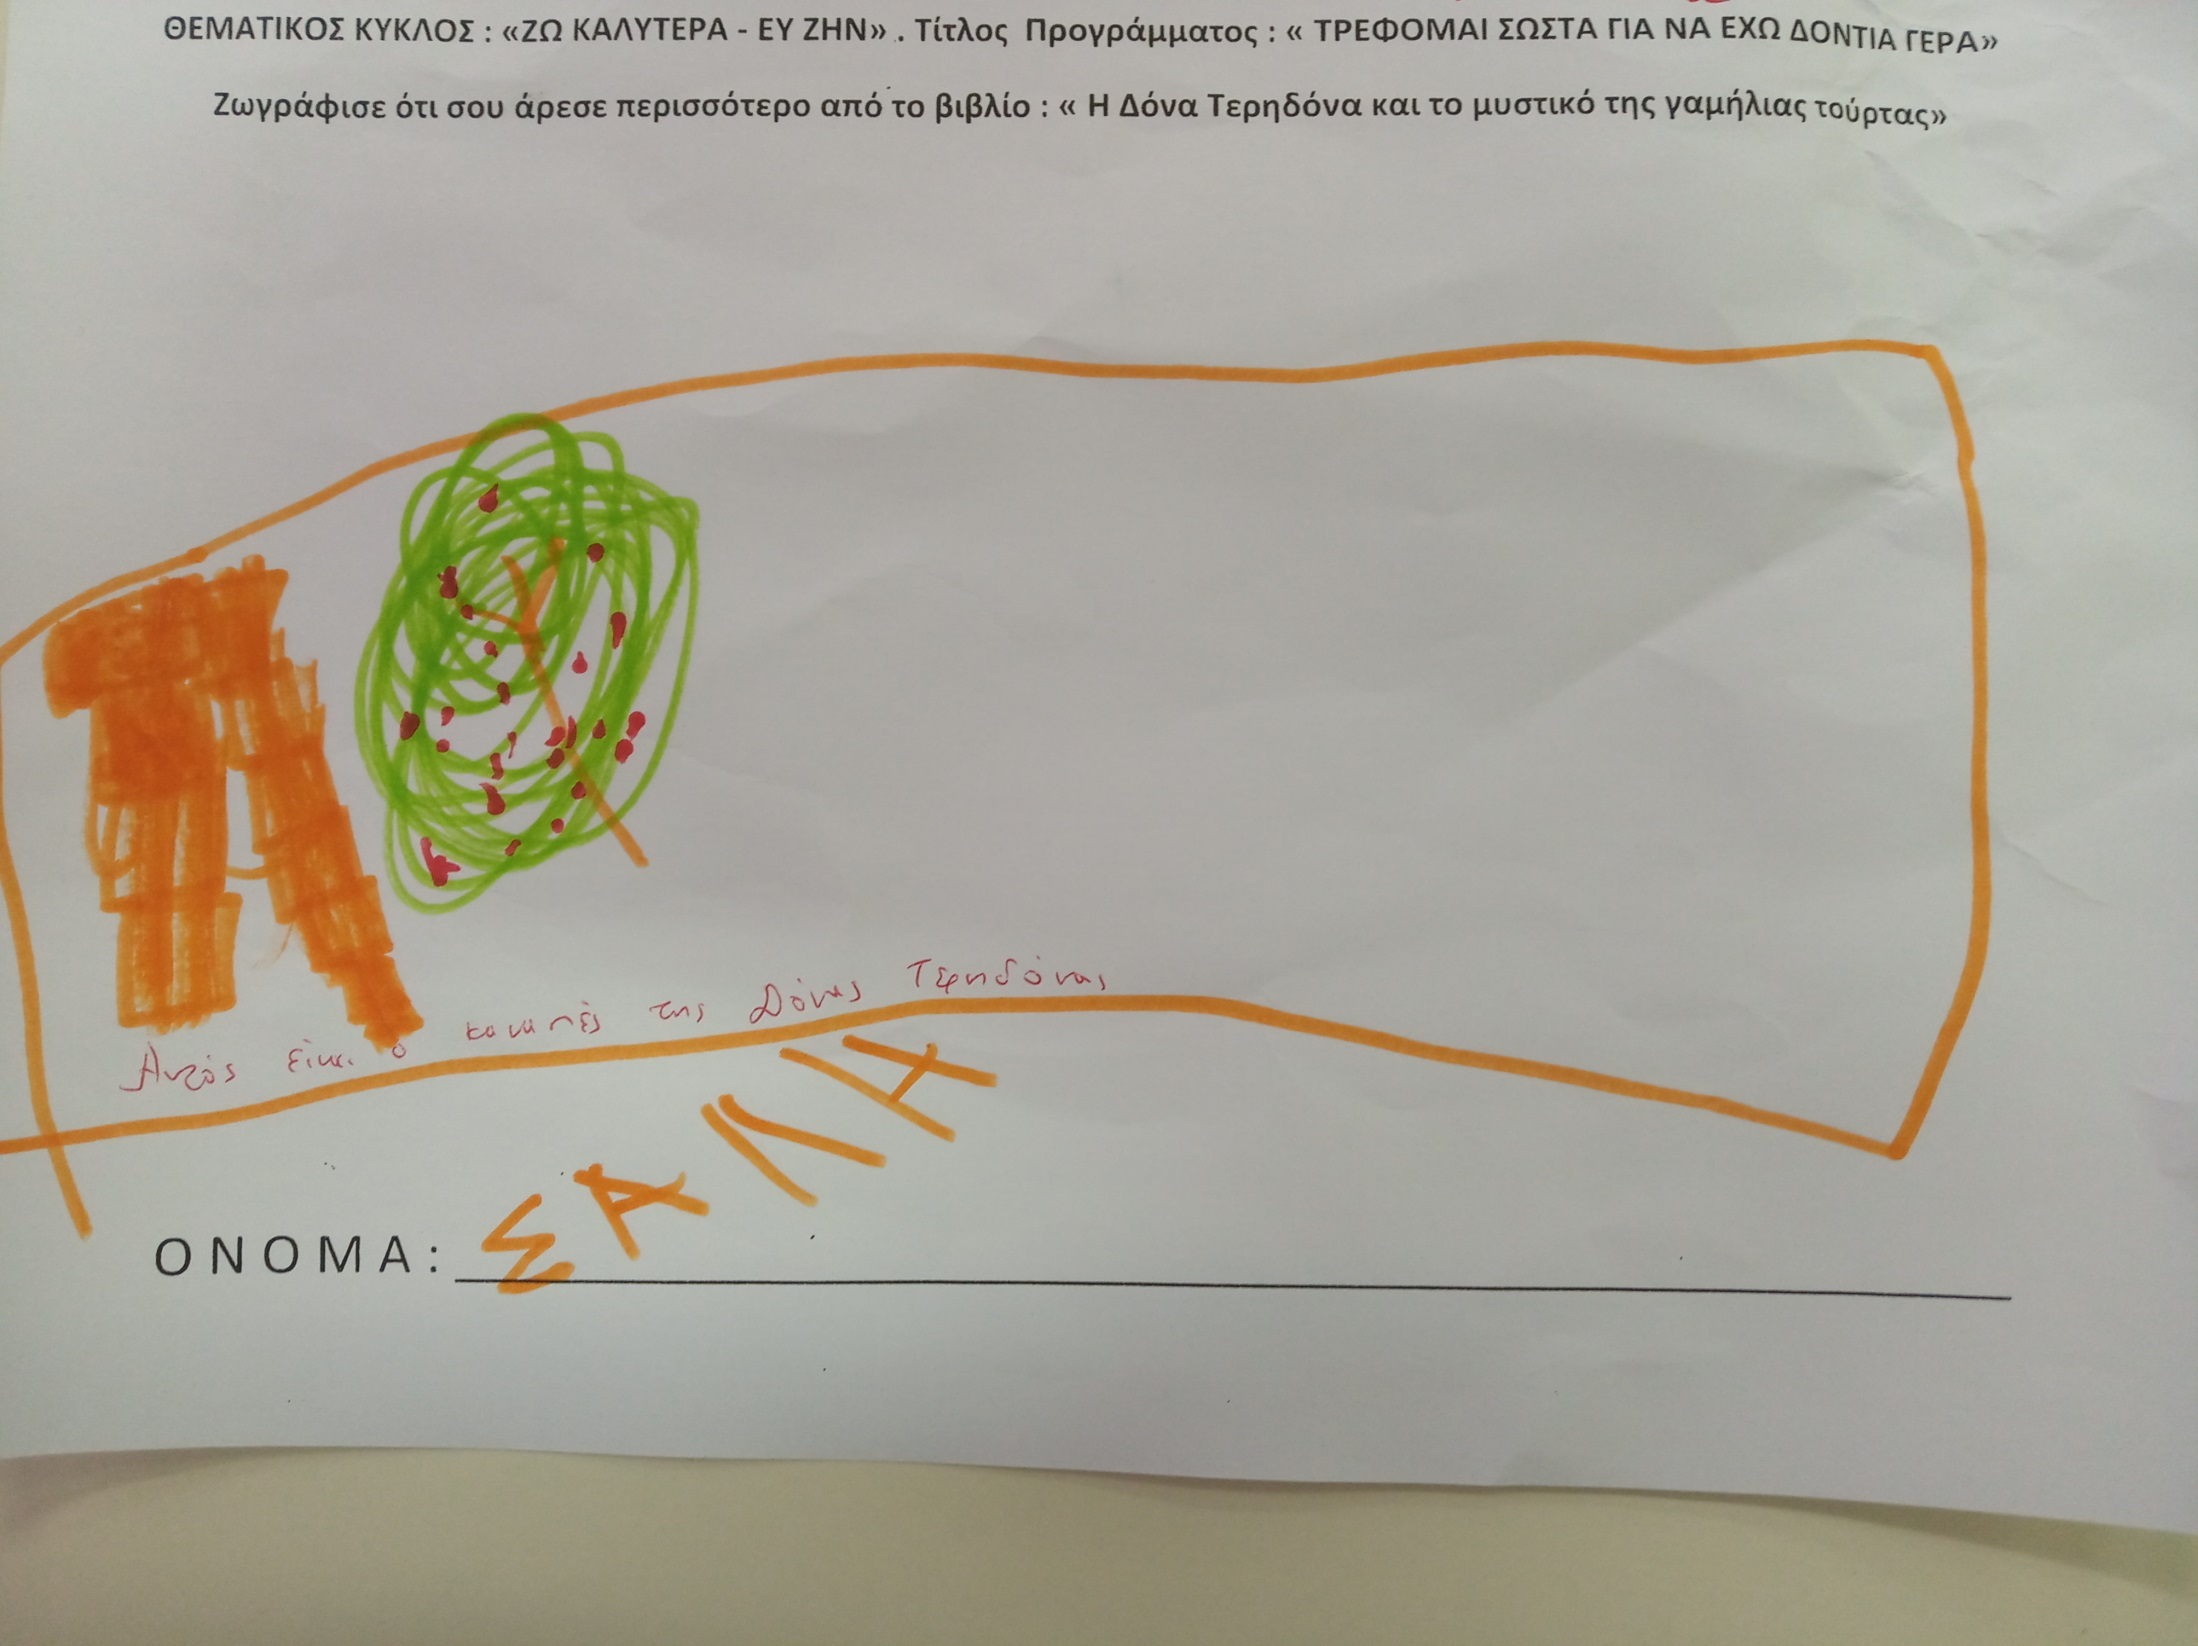 ΘΕΜΑΤΙΚΟΣ ΚΥΚΛΟΣ : «ΖΩ ΚΑΛΥΤΕΡΑ - ΕΥ ΖΗΝ» . Τίτλος Προγράμματος : « ΤΡΕΦΟΜΑΙ ΣΩΣΤΑ ΓΙΑ ΝΑ ΕΧΩ ΔΟΝΤΙΑ ΓΕΡΑ»
Ζωγράφισε ότι σου άρεσε περισσότερο από το βιβλίο : « Η Δόνα Τερηδόνα και το μυστικό της γαμήλιας τούρτας»
Αυτός είναι ο καναπές της Δόνας Τερηδόνας
ΟΝΟΜΑ: ΣΑΛΗ